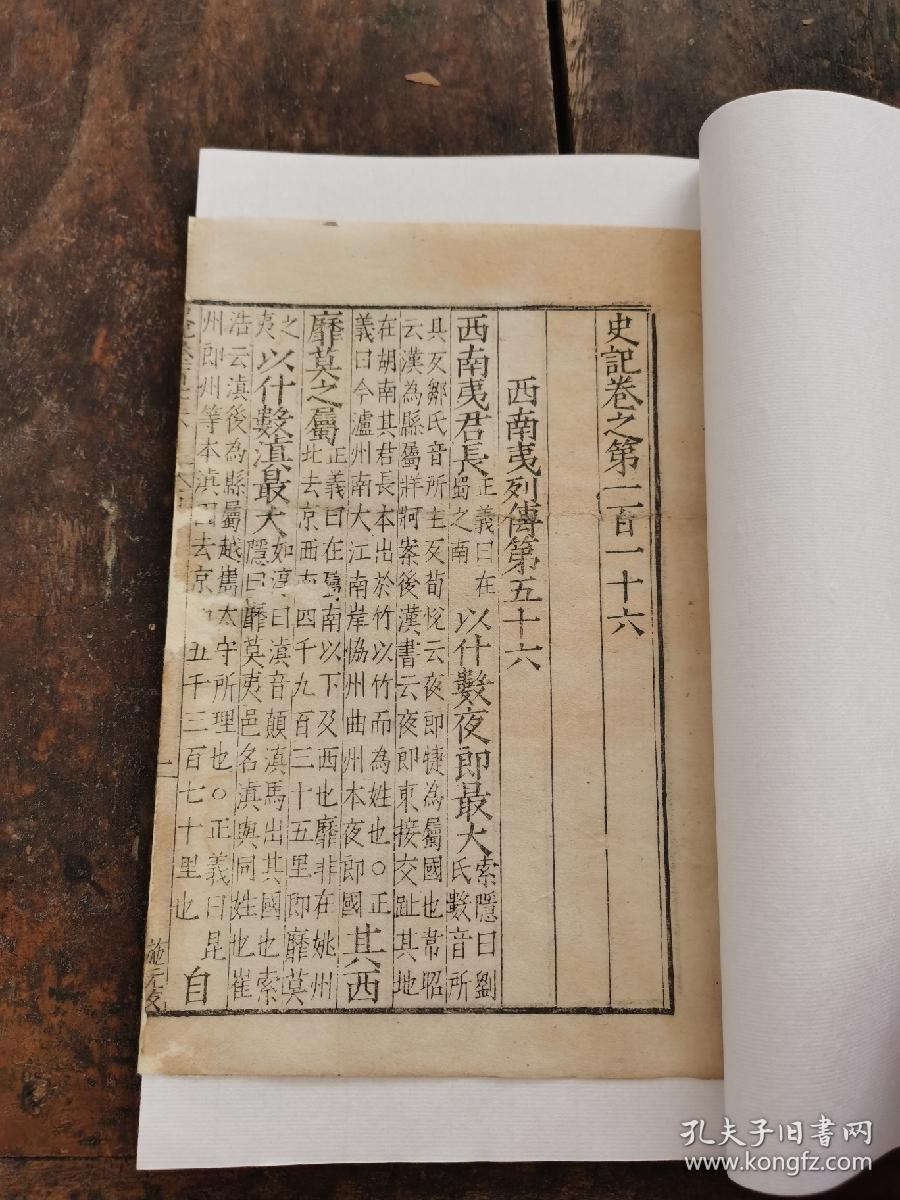 史記卷之第一百一十六
西南夷列傳第五十六
西南夷君長正義曰在蜀之南以什數夜郎最大索隱曰劉氏數音所
具反鄒氏音所主反荀悅云夜郎犍為屬國也韋昭
云漢為縣屬牂牁案後漢書云夜郎東接交趾其地
在胡南其君長本出於竹以竹而為姓也○正
義曰今瀘州南大江南岸協州曲州本夜郎國其西
靡莫之屬正義曰在蜀南以下及西也靡非在姚州
北去京西南四千九百三十五里即靡莫
之夷以什數滇最大如淳曰滇音顛滇馬出其國也索
隱曰靡莫夷邑名滇與同姓也崔
浩云滇後為縣屬越嶲太守所理也○正義曰昆
州郎州等本滇國去京五千三百七十里也自
施元友
孔夫子旧书网
www.kongfz.com